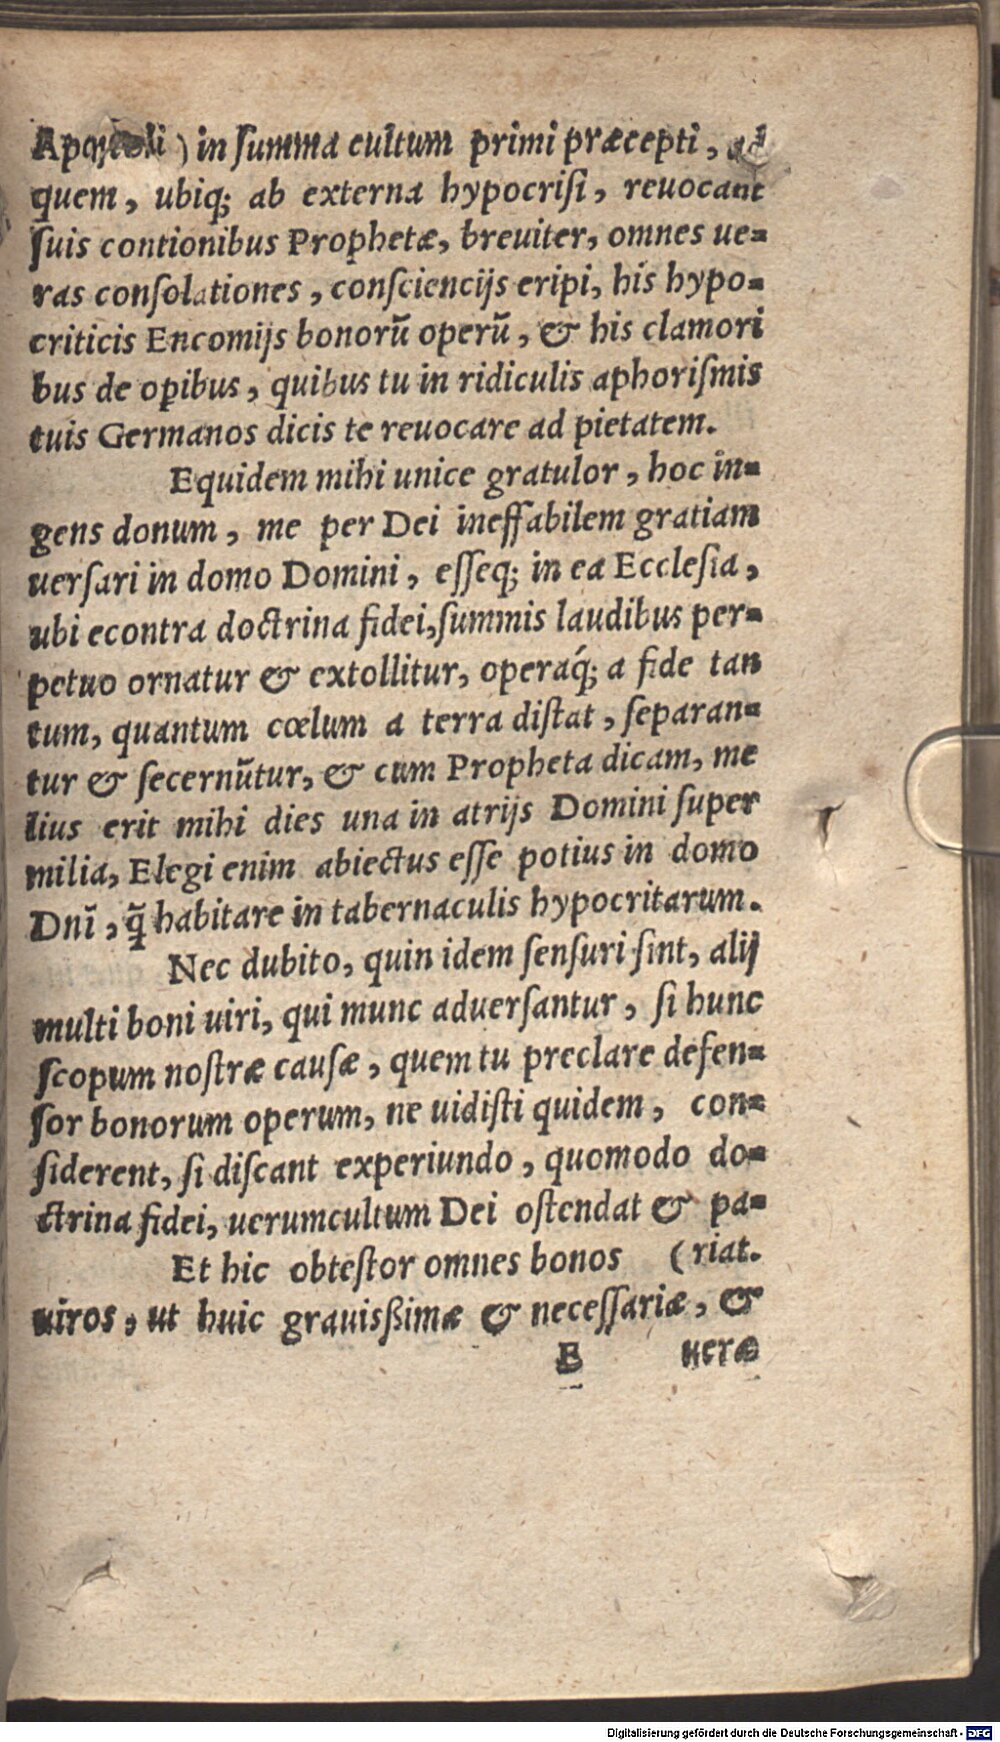 Apostoli ) in ſumma cultum primi præcepti, ad
quem, ubiq; ab externa hypocriſi, reuocant
ſuis contionibus Prophetæ, breuiter, omnes ue=
ras conſolationes, conſciencijs eripi, his hypo=
criticis Encomijs bonorū operū, & his clamori
bus de opibus, quibus tu in ridiculis aphoriſmis
tuis Germanos dicis te reuocare ad pietatem.
Equidem mihi unice gratulor, hoc in=
gens donum, me per Dei ineffabilem gratiam
uerſari in domo Domini, eſſeq; in ea Eccleſia,
ubi econtra doctrina fidei, ſummis laudibus per=
petuo ornatur & extollitur, operaq́; a fide tan
tum, quantum cœlum a terra diſtat, ſeparan=
tur & ſecernūtur, & cum Propheta dicam, me
lius erit mihi dies una in atrijs Domini ſuper
milia, Elegi enim abiectus eſſe potius in domo
Dnī, q̄ habitare in tabernaculis hypocritarum.
Nec dubito, quin idem ſenſuri ſint, alij
multi boni uiri, qui munc aduerſantur, ſi hunc
ſcopum noſtræ cauſæ, quem tu preclare defen=
ſor bonorum operum, ne uidiſti quidem, con=
ſiderent, ſi diſcant experiundo, quomodo do=
ctrina fidei, uerumcultum Dei oſtendat & pa=
Et hic obteſtor omnes bonos (riat.
uiros, ut huic grauisſimæ & neceſſariæ, &
E ueræ
Digitalisierung gefördert durch die Deutsche Forschungsgemeinschaft - DFG